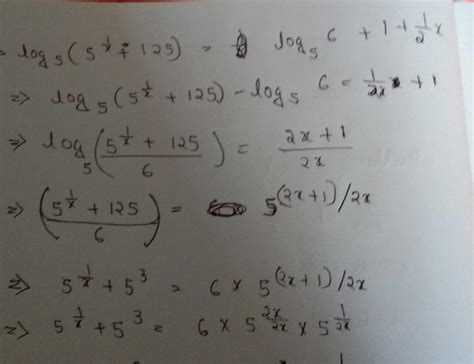 log₅(5^(1/x) + 125) = log₅ 6 + 1 + 1/2x
=> log₅(5^(1/x) + 125) - log₅ 6 = 1/2x + 1
=> log₅((5^(1/x) + 125)/6) = (2x+1)/2x
=> ((5^(1/x) + 125)/6) = 5^((2x+1)/2x)
=> 5^(1/x) + 5³ = 6 × 5^((2x+1)/2x)
=> 5^(1/x) + 5³ = 6 × 5^(2x/2x) × 5^(1/2x)